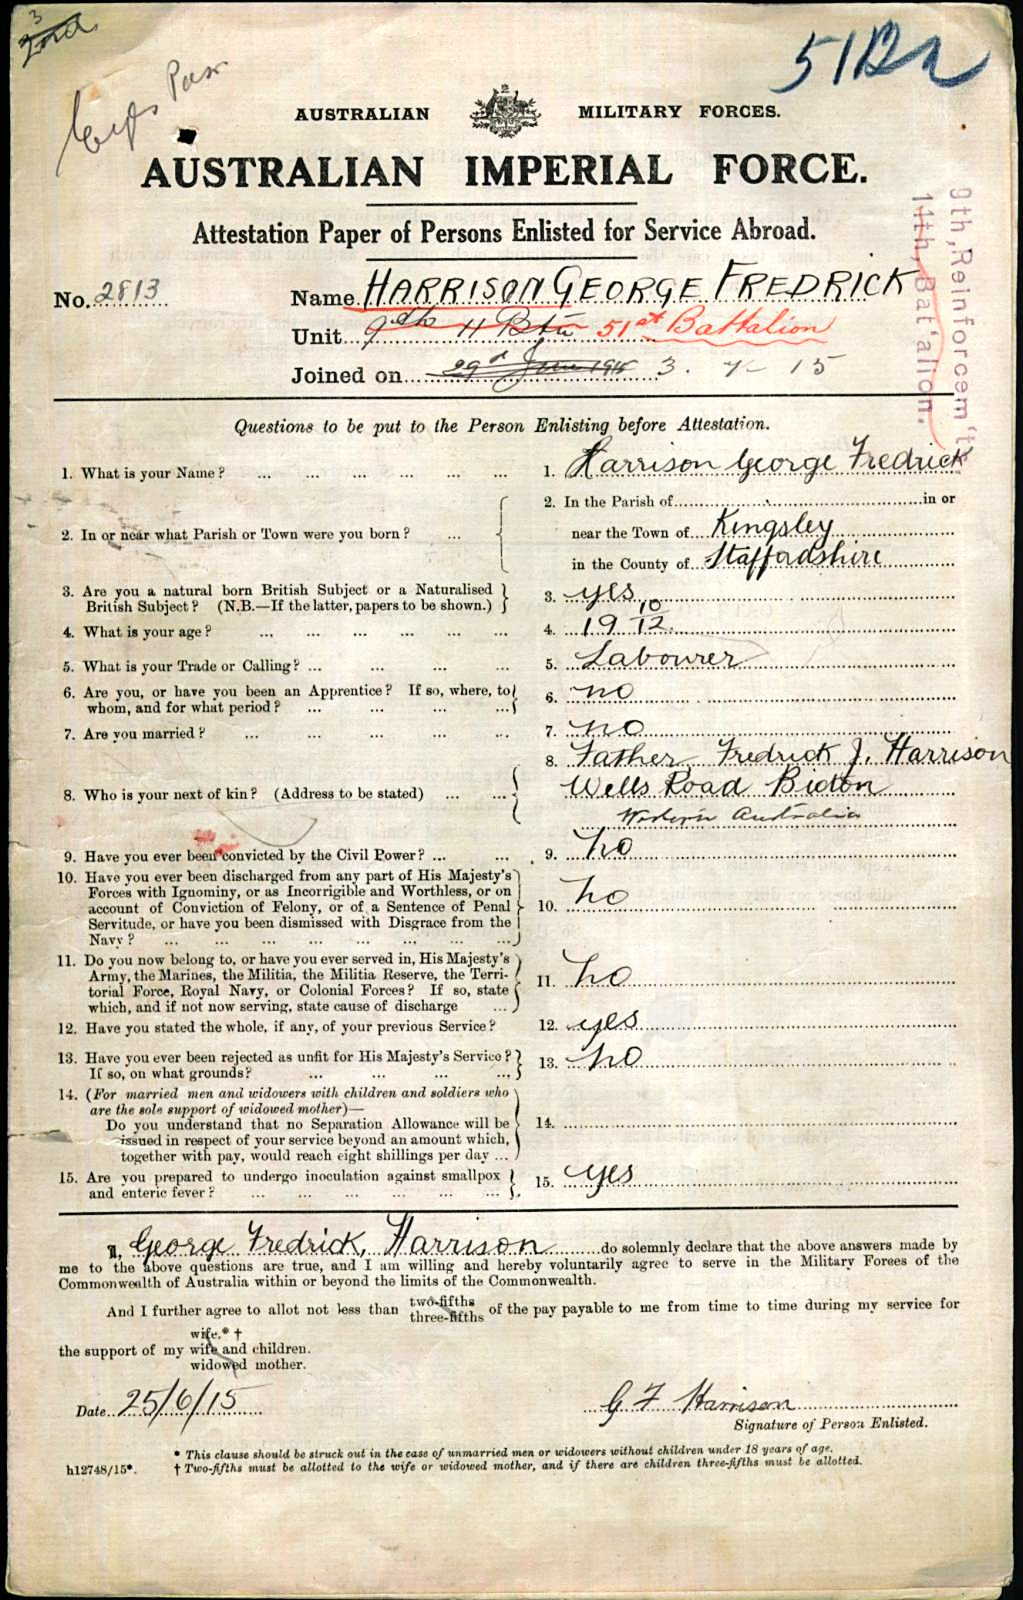 3
2nd
51 Bn
AUSTRALIAN MILITARY FORCES.
AUSTRALIAN IMPERIAL FORCE.
Attestation Paper of Persons Enlisted for Service Abroad.
9th, Reinforcem'ts
11th, Bat'alion.
No. 2813
Name HARRISON GEORGE FREDRICK
Unit 9th 11 Btn 51st Battalion
Joined on 29th June 1915 3. 7 - 15
Questions to be put to the Person Enlisting before Attestation.
1. What is your Name? ... ... ... ... ... ... 1. Harrison George Fredrick
2. In or near what Parish or Town were you born? ... 2. In the Parish of in or
near the Town of Kingsley
in the County of Staffordshire
3. Are you a natural born British Subject or a Naturalised
British Subject? (N.B.—If the latter, papers to be shown.) 3. yes
4. What is your age? ... ... ... ... ... ... 4. 19 10/12
5. What is your Trade or Calling? ... ... ... ... 5. Labourer
6. Are you, or have you been an Apprentice? If so, where, to
whom, and for what period? ... ... ... ... ... 6. no
7. Are you married? ... ... ... ... ... ... 7. no
8. Who is your next of kin? (Address to be stated) ... ... 8. Father Fredrick J. Harrison
Wells Road Bicton
Western Australia
9. Have you ever been convicted by the Civil Power? ... ... 9. no
10. Have you ever been discharged from any part of His Majesty's
Forces with Ignominy, or as Incorrigible and Worthless, or on
account of Conviction of Felony, or of a Sentence of Penal
Servitude, or have you been dismissed with Disgrace from the
Navy? ... ... ... ... ... ... ... ... 10. no
11. Do you now belong to, or have you ever served in, His Majesty's
Army, the Marines, the Militia, the Militia Reserve, the Terri-
torial Force, Royal Navy, or Colonial Forces? If so, state
which, and if not now serving, state cause of discharge ... 11. no
12. Have you stated the whole, if any, of your previous Service? 12. yes
13. Have you ever been rejected as unfit for His Majesty's Service?
If so, on what grounds? ... ... ... ... 13. no
14. (For married men and widowers with children and soldiers who
are the sole support of widowed mother)—
Do you understand that no Separation Allowance will be
issued in respect of your service beyond an amount which,
together with pay, would reach eight shillings per day ... 14.
15. Are you prepared to undergo inoculation against smallpox
and enteric fever? ... ... ... ... ... ... 15. yes
I, George Fredrick, Harrison do solemnly declare that the above answers made by
me to the above questions are true, and I am willing and hereby voluntarily agree to serve in the Military Forces of the
Commonwealth of Australia within or beyond the limits of the Commonwealth.
And I further agree to allot not less than two-fifths three-fifths of the pay payable to me from time to time during my service for
wife.* †
the support of my wife and children.
widowed mother.
Date 25/6/15
G F Harrison
Signature of Person Enlisted.
* This clause should be struck out in the case of unmarried men or widowers without children under 18 years of age.
h12748/15*. † Two-fifths must be allotted to the wife or widowed mother, and if there are children three-fifths must be allotted.